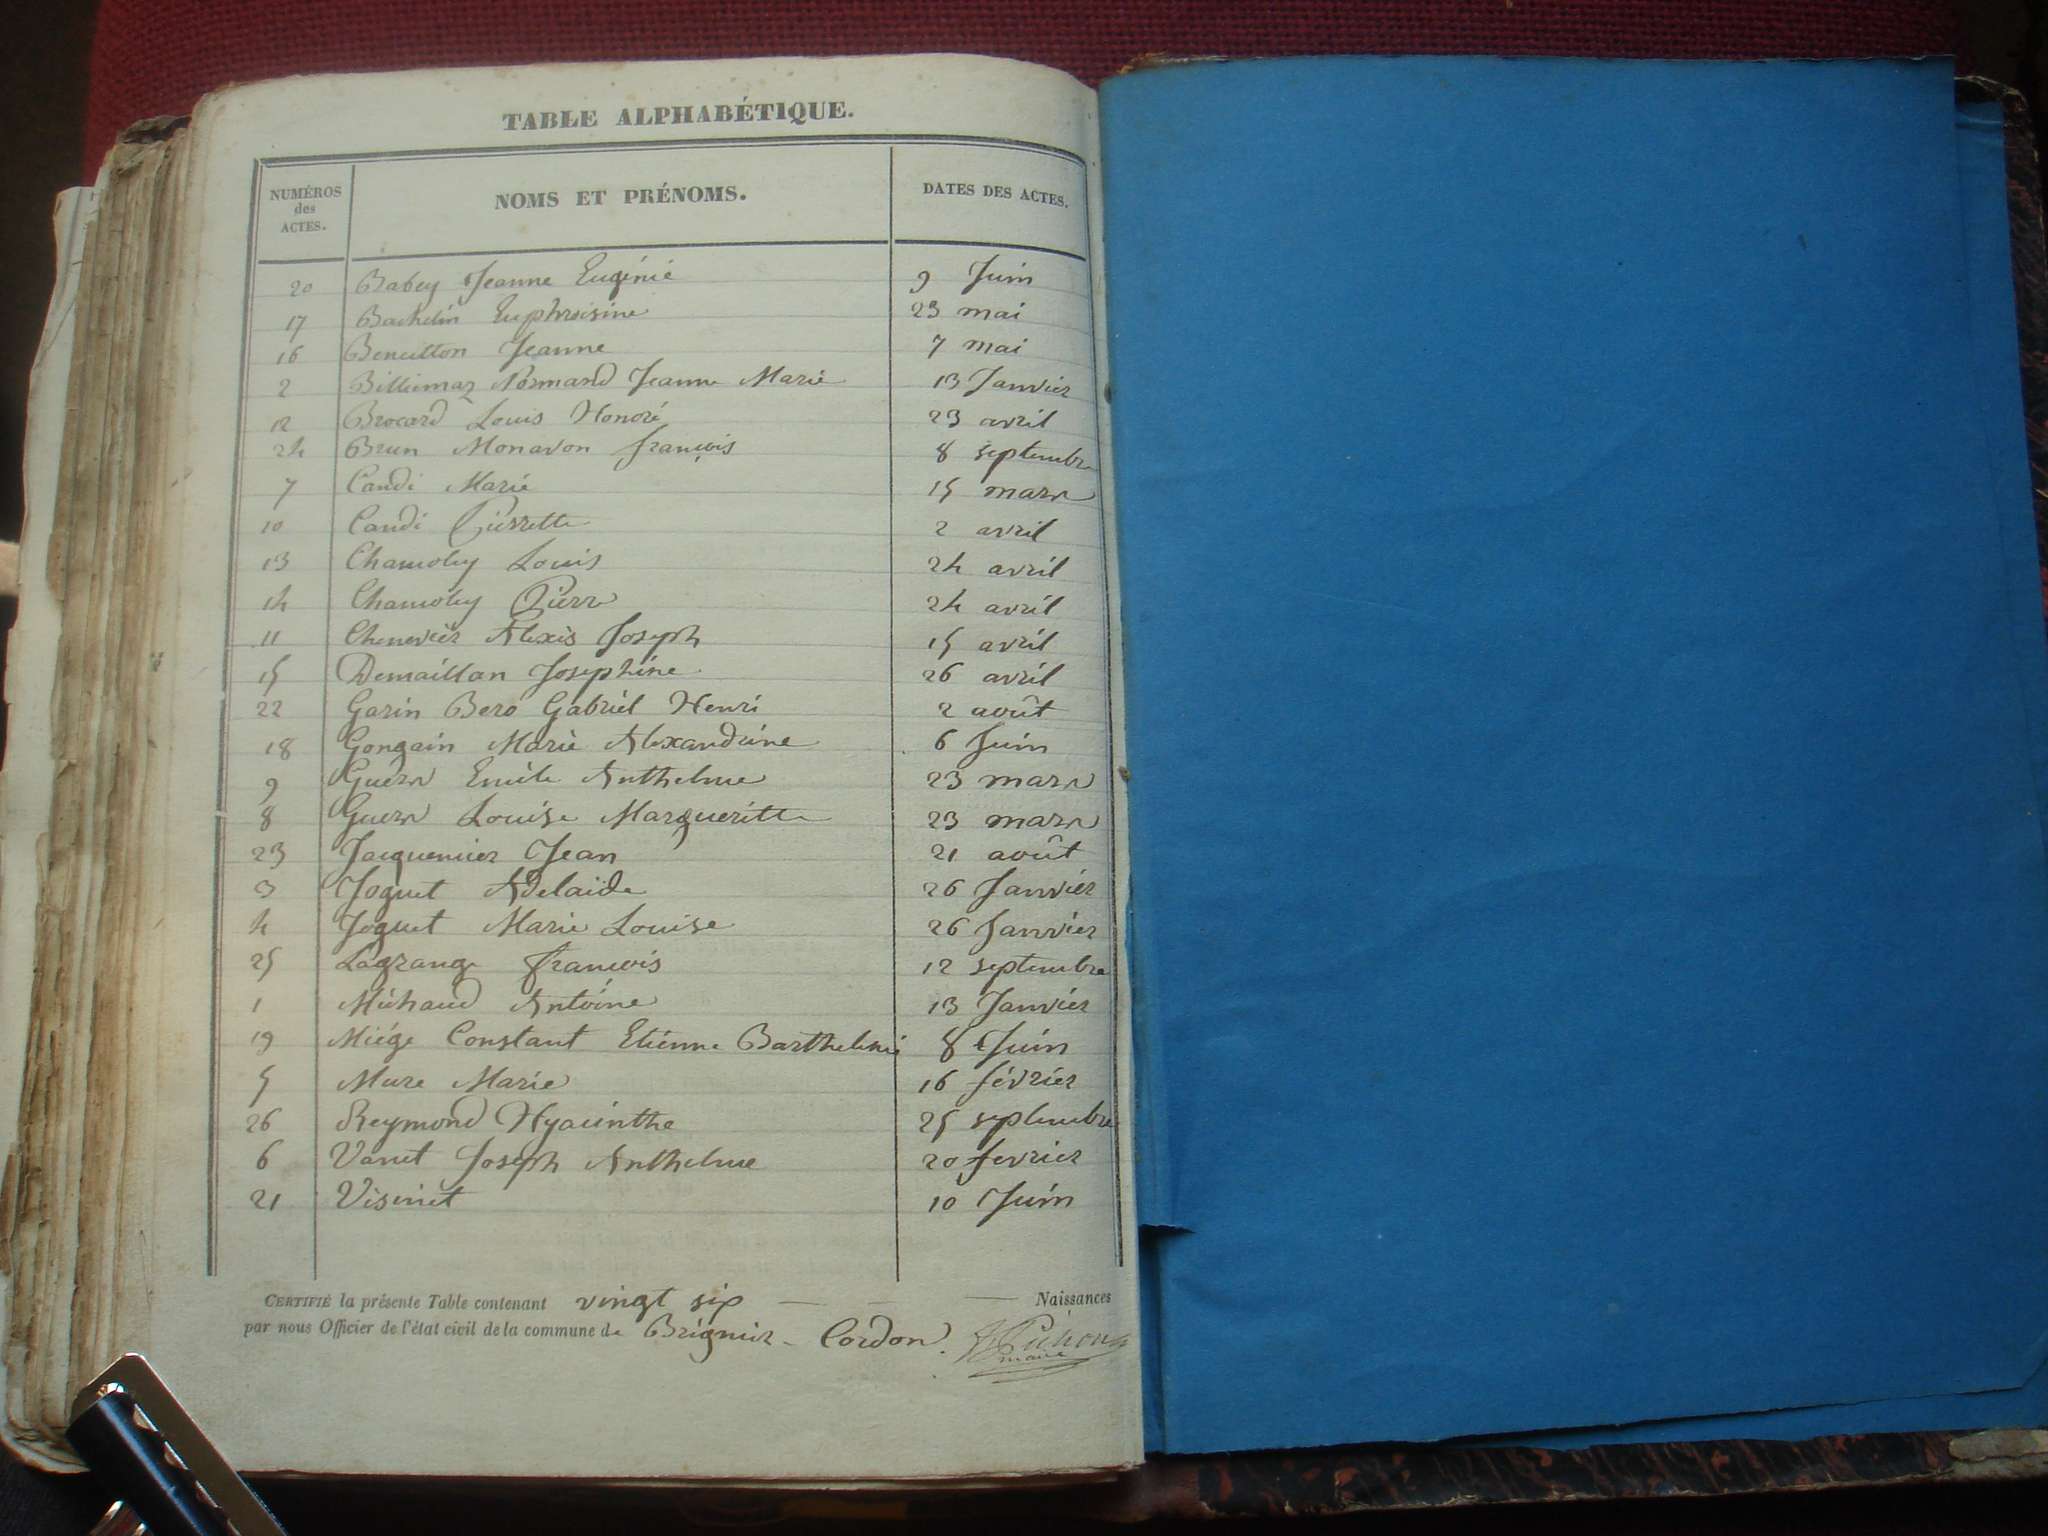 TABLE ALPHABÉTIQUE.
NUMÉROS des ACTES. NOMS ET PRÉNOMS. DATES DES ACTES.
20 Babey Jeanne Eugénie 9 Juin
17 Bachelin Euphroisine 23 mai
16 Beneitton Jeanne 7 mai
2 Billiemaz Normand Jeanne Marie 13 Janvier
12 Brocard Louis Honoré 23 avril
24 Brun Monavon françois 8 septembre
7 Candi Marie 15 mars
10 Candi Pierrette 2 avril
13 Chamoley Louis 24 avril
14 Chamoley Pierre 24 avril
11 Chenevier Alexis Joseph 15 avril
15 Demaillan Josephine 26 avril
22 Garin Bero Gabriel Henri 2 août
18 Gongain Marie Alexandrine 6 Juin
9 Guers Emile Anthelme 23 mars
8 Guers Louise Margueritte 23 mars
23 Jacquemier Jean 21 août
3 Joguet Adelaïde 26 Janvier
4 Joguet Marie Louise 26 Janvier
25 Lagrange françois 12 septembre
1 Michaud Antoine 13 Janvier
19 Miége Constant Etienne Barthelemi 8 Juin
5 Mure Marie 16 février
26 Reymond Hyacinthe 25 septembre
6 Vanet Joseph Anthelme 20 fevrier
21 Visinet 10 Juin
CERTIFIÉ la présente Table contenant vingt six — — — Naissances
par nous Officier de l'état civil de la commune de Brignier - Cordon.
maire